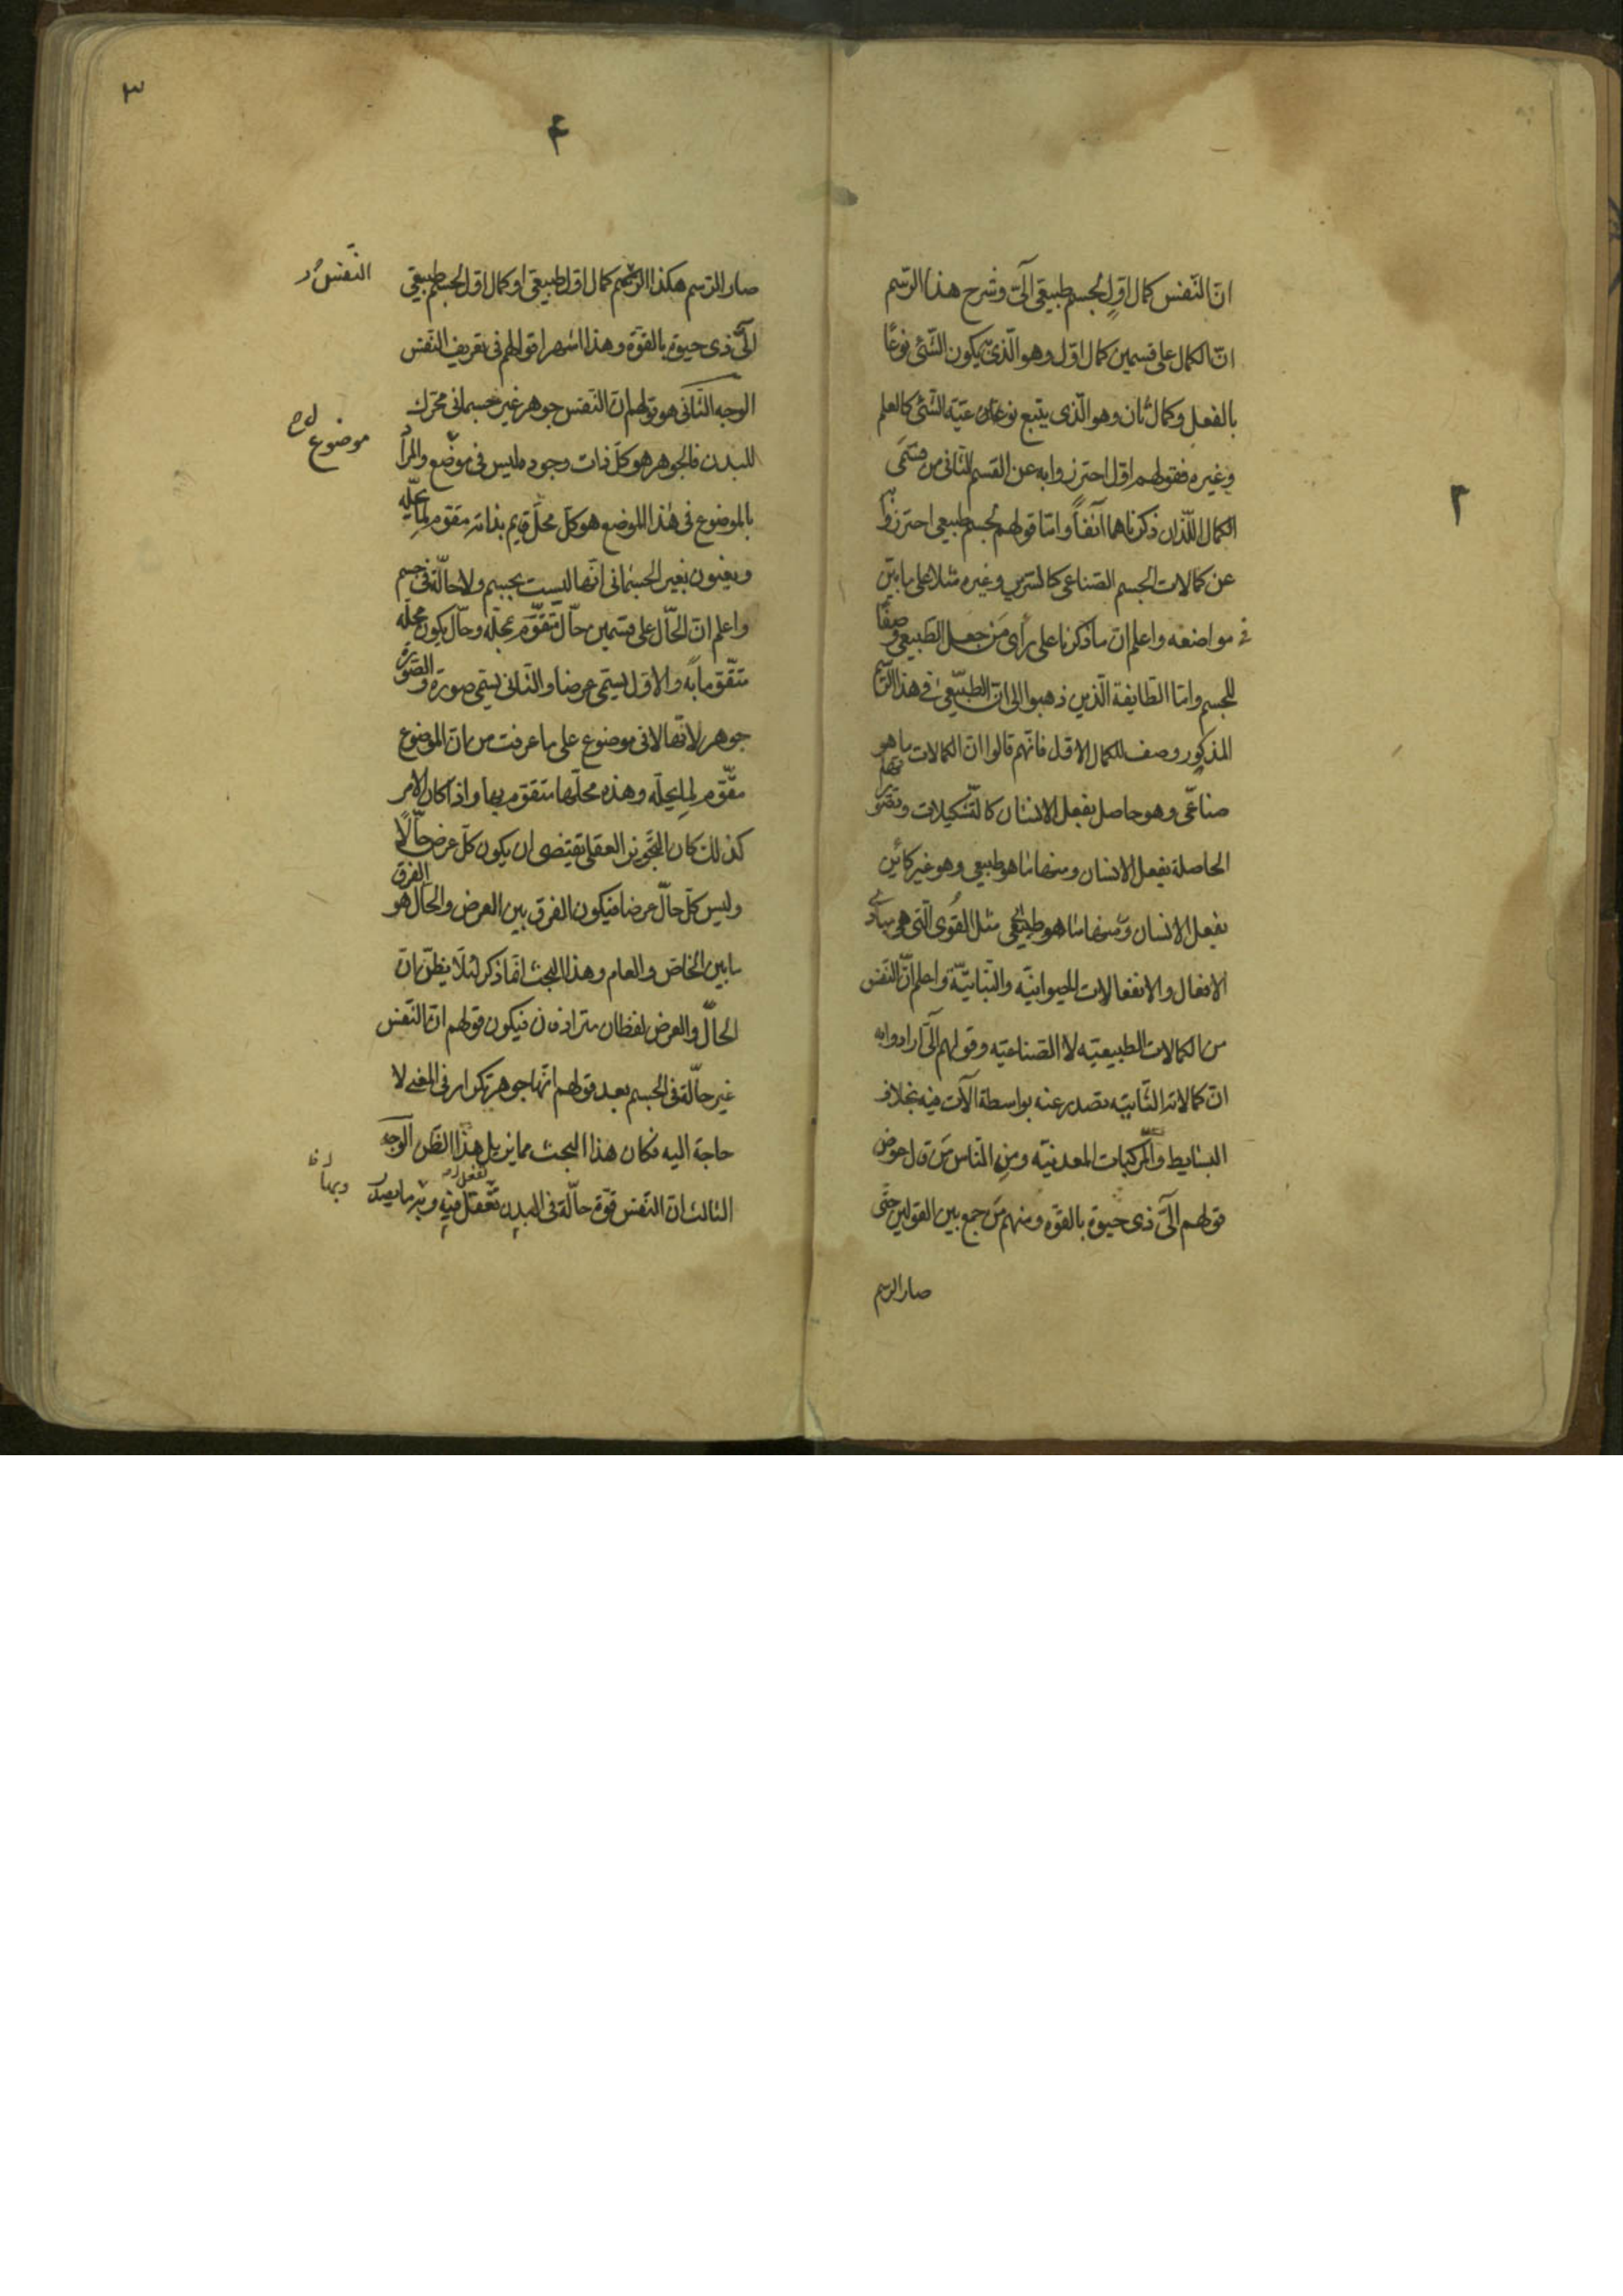 ٢
انّ النّفس كمال اوّل لجسم طبيعى آلىّ وشرح هذا الرّسم
انّ الكمال على قسمين كمال اوّل وهو الّذى يكون الشّئ نوعًا
بالفعل وكمال ثان وهو الّذى يتبع نوعيّة الشّئ كالعلم
وغيره فقولهم اوّل احترزوا به عن القسم الثانى من قسمَى
الكمال اللّذان ذكرناهما آنفاً وامّا قولهم لجسم طبيعى احترزوا
عن كمالات الجسم الصّناعى كالسّرير وغيره مثلا على ما بيّن
فى مواضعه واعلم انّ ما ذكرنا على رأى مَن جعل الطّبيعى وصفًا
للجسم وامّا الطّايفة الّذين ذهبوا الى انّ الطّبيعى فى هذا الرّسم
المذكور وصف للكمال الاوّل فانّهم قالوا انّ الكمالات منها ما هو
صناعّى وهو حاصل بفعل الانسان كالتّشكيلات
الحاصلة بفعل الانسان ومنها ما هو طبيعى وهو غير كائن
بفعل الانسان ومنها ما هو طبيعى مثل القُوى الّتى هى مبادى
الافعال والانفعالات الحيوانيّه والنّباتيّة واعلم انّ النّفس
من الكمالات الطبيعيّه لا الصّناعيّه وقولهم آلىّ ارادوا به
انّ كمالاته الثّانيّه تصدر عنه بواسطة آلات فيه بخلاف
البسايط والمركبات المعدنيّه ومِن النّاس مَن قال عوض
قولهم آلىّ ذى حيوة بالقوّه ومنهم مَن جمع بين القولين حتّى
صار الرسم
٣
٤
صار الرّسم هكذا الرّسم كمال اوّل طبيعى او كمال اوّل لجسم طبيعى
النّفس
آلىّ ذى حيوة بالقوّة وهذا اشهر اقوالهم فى تعريف النّفس
الوجه الثّانى هو قولهم انّ النّفس جوهر غير جسمانى محرّك
للبدن فالجوهر هو كلّ ذات وجوده ليس فى موضع والمراد
موضوع
بالموضوع فى هذا الموضع هو كلّ محلّ قايم بذاته مقوّم لما يحلّه
ويعنون بغير الجسمانى انّها ليست بجسم ولا حالّة فى جسم
واعلم انّ الحّال على قسمين حّال تتقوّم بمحلّه وحّال يكون محلّه
متّقوّما به والاوّل يسمّى عرضا والثّانى يسمّى صورة والصّورة
جوهر لانّها لا فى موضوع على ما عرفت من انّ الموضوع
مقّوّم لما يحلّه وهذه محلّها متقوّم بها واذا كان الامر
كذلك كان التّجويز العقلى يقتضى ان يكون كلّ عرض حّالًا
وليس كلّ حالّ عرضا فيكون الفرق بين العرض والحّال هو الفرق
ما بين الخاصّ والعام وهذا البحث انّما ذكر لئلّا يظنّ انّ
الحالّ والعرض لفظان مترادفان فيكون قولهم انّ النّفس
غير حالّة فى الجسم بعد قولهم انّها جوهر تكرار فى المعنى لا
حاجة اليه فكان هذا البحث مما يزيل هذا الظّن الوجه
الثالث انّ النّفس قوّة حالّة فى البدن تفعل فيه وبه ما يصدر
تفعل
وبها